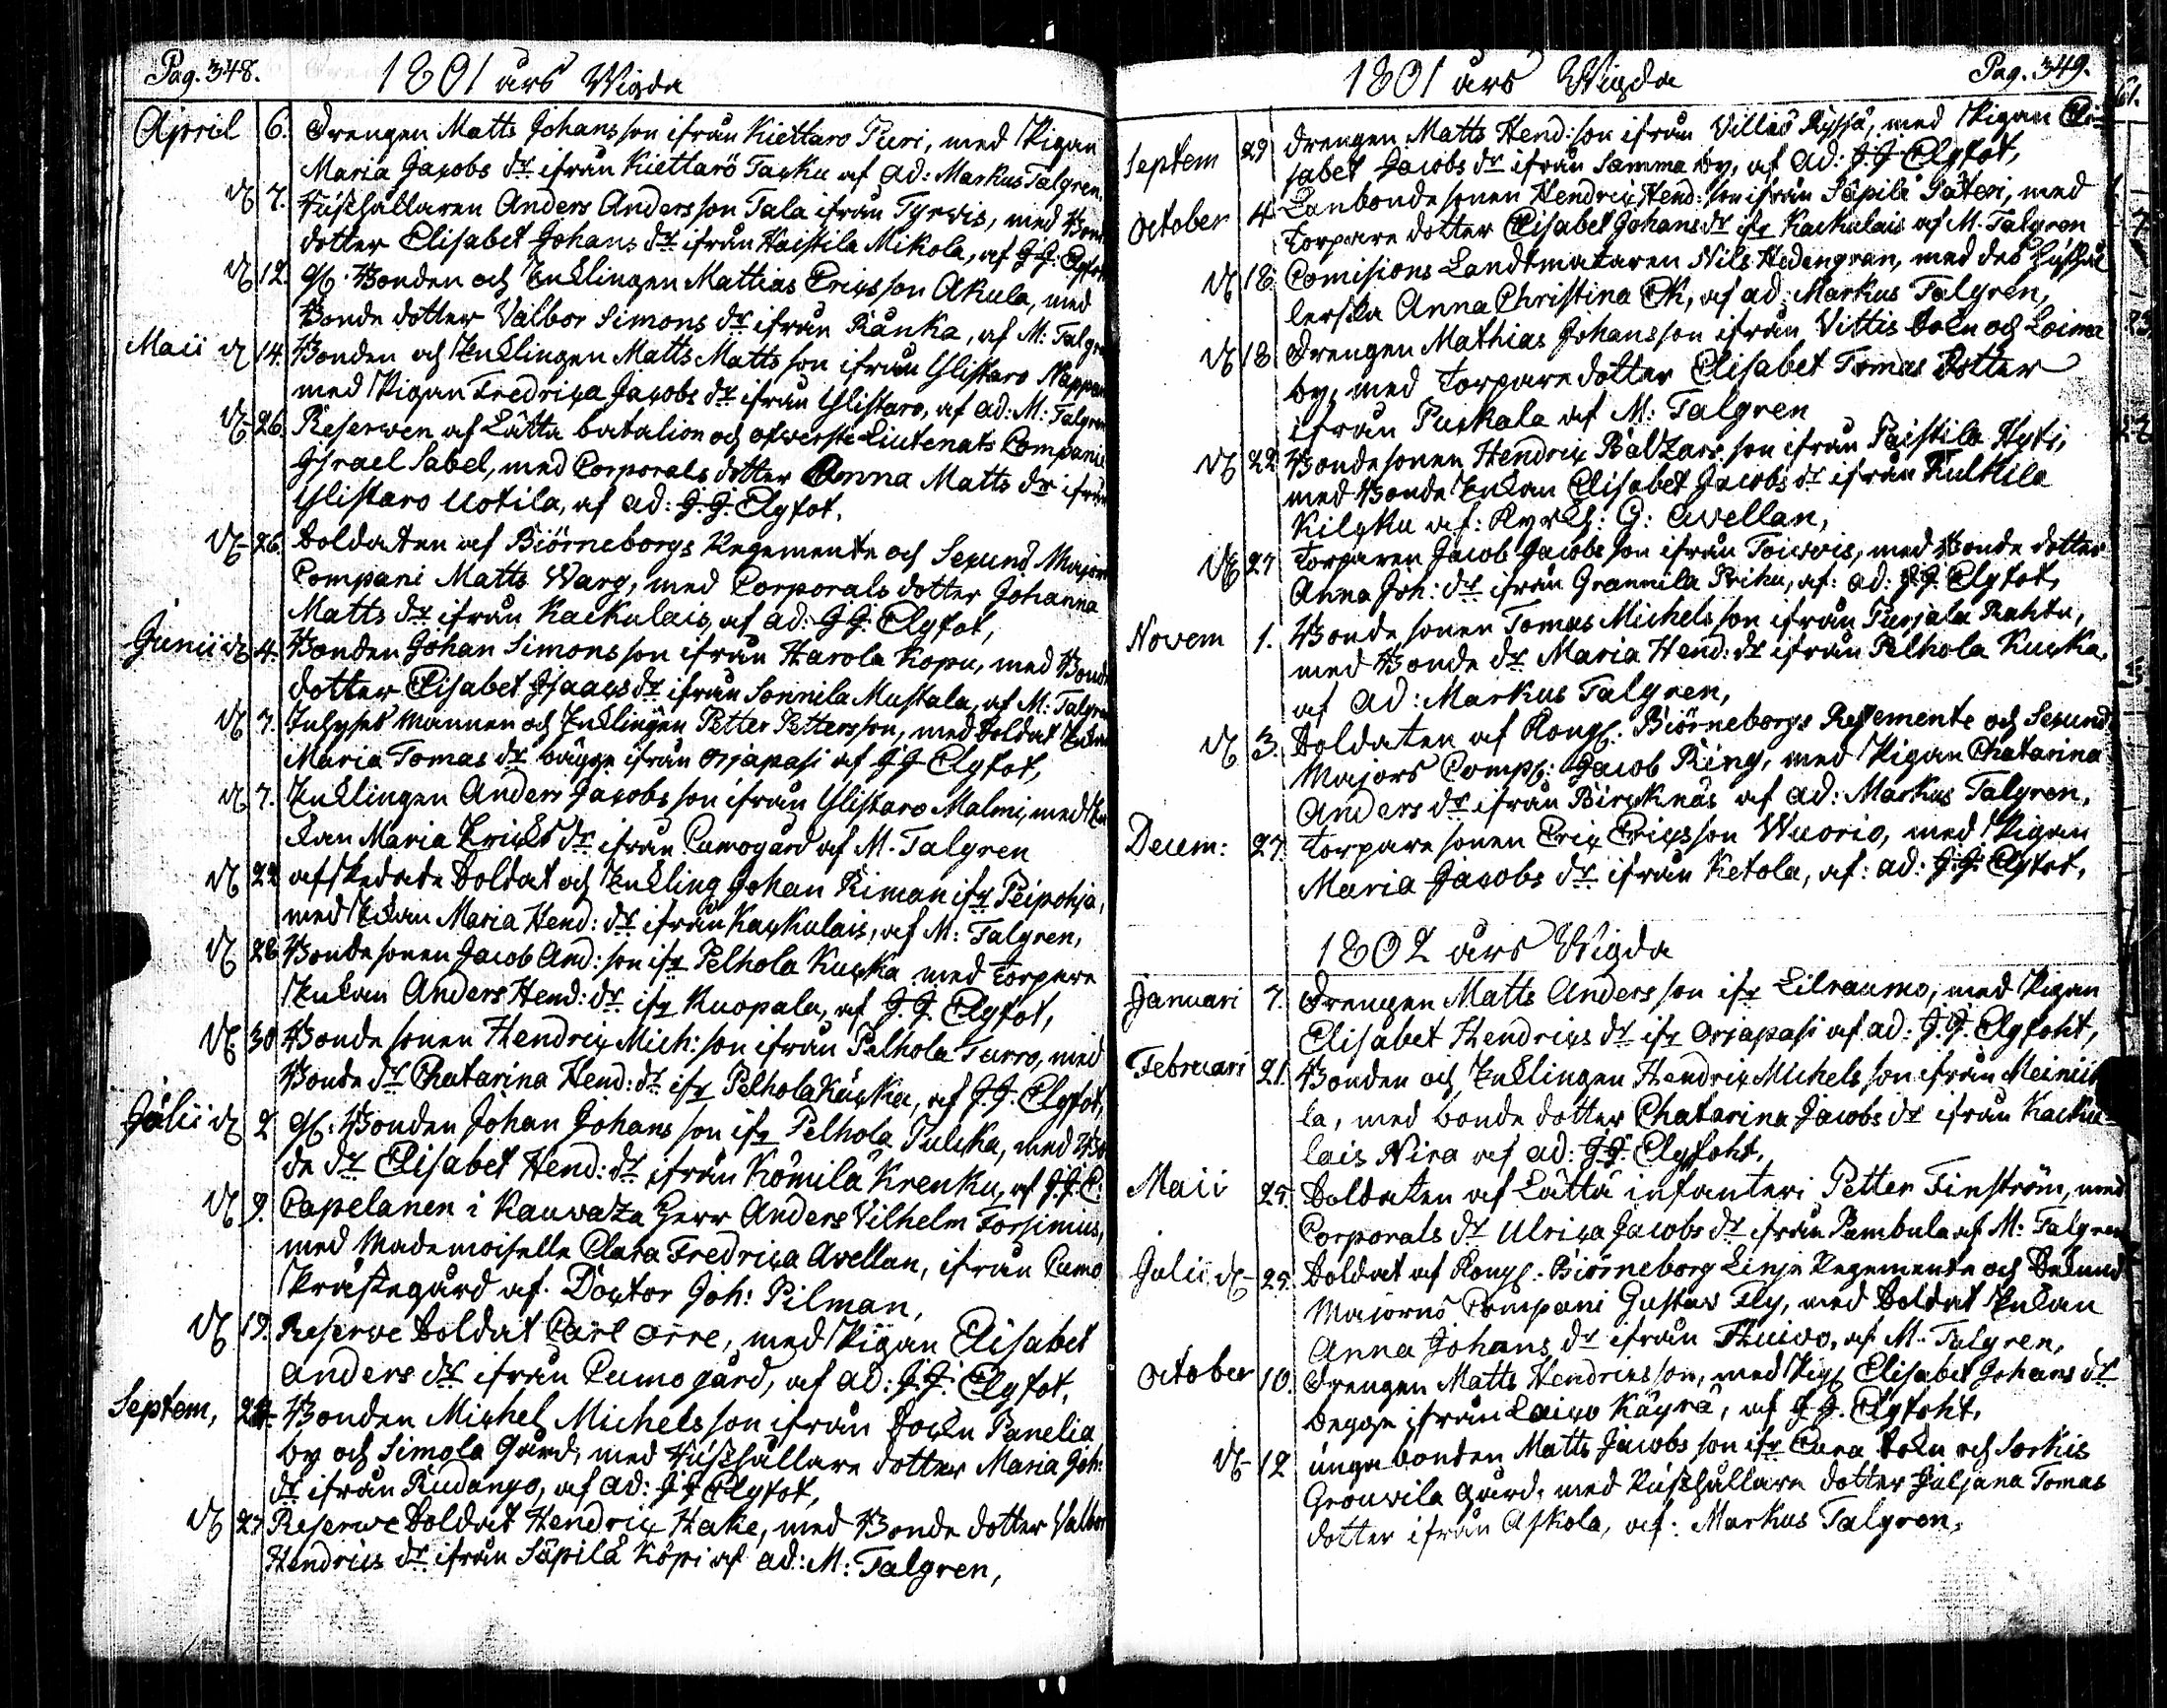 Pag. 348.
1801 års Wigda
April 6. Drengen Matts Johansson ifrån Kiettaro Piri, med Pigan
Maria Jacobs dr ifrån Kiettarö Tasku af Ad: Markus Talgren.
d 7. Rusthållaren Anders Andersson Tala ifrån Tyrvis, med Bonde
dotter Elisabet Johans dr ifrån Haistila Mikola, af J: J: Elgfot
d 12. Gl: Bonden och Enklingen Mattias Ericsson Akula, med
Bonde dotter Valbor Simons dr ifrån Ränka, af M: Talgren
Maii d 14. Bonden och Enklingen Matts Matts son ifrån Ylistaro Nappar
med Pigan Fredrica Jacobs dr ifrån Ylistaro, af ad: M: Talgren
d 26. Reserven af Lätta batalion och ofverste Liutenats Compani
Israel Sabel, med Corporals dotter Anna Matts dr ifrån
Ylistaro Uotila, af ad: J. J. Elgfot.
d 26. Soldaten af Biörneborgs Regemente och Secund Majors
Compani Matts Warg, med Corporals dotter Johanna
Matts dr ifrån Kackulais af ad: J J: Elgfot,
Junii d 4. Bonden Johan Simons son ifrån Harola Kopu, med Bonde
dotter Elisabet Isaacs dr ifrån Sonnila Mustala, af M: Talgren
d 7. Inhyses mannen och Enklingen Petter Pettersson, med Soldat
Maria Tomas dr bägge ifrån Orjapasi af J J Elgfot,
d 7. Enklingen Anders Jacobs son ifrån Ylistaro Malmi, med En
kan Maria Ericks dr ifrån Cumogård af M. Talgren
d 22 afskedade Soldat och Enkling Johan Riman ifr Peipohja,
med Enkan Maria Hend: dr ifrån Kackulais, af M: Talgren,
d 28 Bonde sonen Jacob And: son ifr Pelhola Kucka med Torpare
Enkan Anders Hend: dr ifr Kuopala, af J. J. Elgfot,
d 30 Bonde sonen Hendric Mich: son ifrån Pelhola Turro, med
Bonde dr Chatarina Hend: dr ifr Pelhola Kucka, af J. J. Elgfot,
Julii d 2 Gl: Bonden Johan Johans son ifr Pelhola Julcka, med Bo
de dr Elisabet Hend: dr ifrån Kömilä Krenku, af J. J. E:
d 9. Capelanen i Kauvatza Herr Anders Vilhelm Forsinius,
med Mademoiselle Clara Fredrica Avellan, ifrån Cumo
Prästegård af Doctor Joh: Pilman,
d 19. Reserve Soldat Carl Orre, med Pigan Elisabet
Anders dr ifrån Cumo gård, af ad: J. J. Elgfot,
Septem, 24. Bonden Michel Michels son ifrån Sockn Panelia
by och Simola Gård, med Rusthållare dotter Maria Joh:
dr ifrån Rudanyo, af ad: J J Elgfot,
d 27 Reserve Soldat Hendric Hake, med Bonde dotter Valbor
Hendrics dr ifrån Säpilä Köpi af ad: M: Talgren,
Pag. 349.
1801 års Wigda
Septem 29 Drengen Matts Hend: son ifrån Villiö Ryssä, med Pigan Eli-
sabet Jacobs dr ifrån Samma by, af ad: J. J Elgfot,
October 4 Lanbonde sonen Hendric Hend: son ifrån Säpilä Säteri, med
Torpare dotter Elisabet Johans dr ifr Kackulais af M. Talgren
d 18 Comisions Landtmätaren Nils Hedengran, med des hushål
lerska Anna Christina Ek, af ad: Markus Talgren,
d 18 Drengen Mathias Johans son ifrån Vittis Sokn och Loima
by, med Torpare dotter Elisabet Tomas dotter
ifrån Puckala af M: Talgren
d 22 Bonde sonen Hendric Baltzars son ifrån Paistila Hyti,
med Bonde Enkan Elisabet Jacobs dr ifrån Kulkila
Kilcku af: Kyrkh: G: Avellan,
d 27 Torparen Jacob Jacobs son ifrån Toivois, med Bonde dotter
Anna Joh: dr ifrån Grannila Prihu, af: ad: J. J. Elgfot,
Novem 1. Bonde sonen Tomas Michels son ifrån Purjala Rahtu,
med Bonde dr Maria Hend: dr ifrån Pelhola Kucka,
af ad: Markus Talgren,
d 3. Soldaten af Kongl: Biörneborgs Regemente och Secund
Majors Comp: Jacob Ring, med Pigan Chatarina
Anders dr ifrån Bircknäs af ad: Markus Talgren,
Decem: 27. Torpare sonen Eric Ericsson Wuorio, med Pigan
Maria Jacobs dr ifrån Ketola, af: ad: J. J: Elgfot,
1802 års Wigda
Januari 7. Drengen Matts Anders son ifr Lilraumo, med Pigan
Elisabet Hendrics dr ifr Orjapasi af ad: J. J. Elgfoht,
Februari 21. Bonden och Enklingen Hendric Michels son ifrån Meinii
la, med bonde dotter Chatarina Jacobs dr ifrån Kacku-
lais Nira af ad: J. J: Elgfoht,
Maii 25. Soldaten af Lätta infanteri Petter Finström, med
Corporals dr Ulrica Jacobs dr ifrån Pambula af M: Talgren
Julii d 25. Soldat af Kongl: Biörneborg Linje Regemente och Secund
Majorns Compani Gustav Fly, med Soldat Enkan
Anna Johans dr ifrån Thuivo, af M. Talgren,
October 10. Drengen Matts Hendricsson, med Pig: Elisabet Johans dr
begge ifrån Laivo Käyrä, af J. J. Elgfoht.
d 12 unga bonden Matts Jacobs son ifr Eura Sokn och Sorkis
Grouvila gård, med Rusthållare dotter Juljana Tomas
dotter ifrån Askola, af: Markus Talgren,